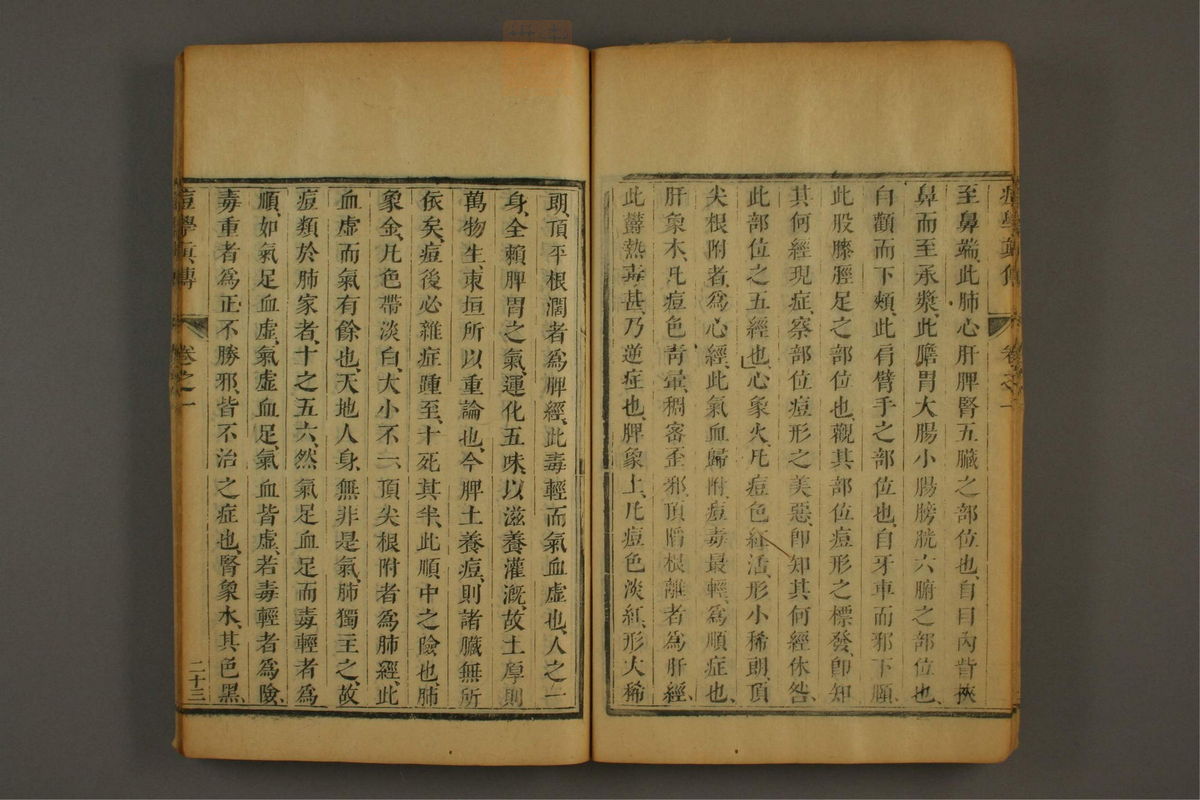 至鼻端、此肺心肝脾腎五臟之部位也、自目內眥挾
鼻而至承漿、此膽胃大腸小腸膀胱六腑之部位也、
自顴而下頰、此肩臂手之部位也、自牙車而邪下頤
此股膝脛足之部位也、觀其部位痘形之標發、卽知
其何經現症、察部位痘形之美惡、卽知其何經休咎、
此部位之五經也、心象火、凡痘色紅活、形小稀朗、頂
尖根附者、爲心經、此氣血歸附、痘毒最輕爲順症也、
肝象木、凡痘色靑暈、稠密歪邪、頂㬱根離者爲肝經
此欝熱毒甚、乃逆症也、脾象土、凡痘色淡紅、形大稀
朗、頂平根濶者爲脾經、此毒輕而氣血虛也、人之一
身、全賴脾胃之氣、運化五味、以滋養灌漑、故土厚則
萬物生、東垣所以重論也、今脾土養痘、則諸臟無所
依矣、痘後必雜症踵至、十死其半、此順中之險也、肺
象金、凡色帶淡白、大小不一、頂尖根附者爲肺經、此
血虛而氣有餘也、天地人身、無非是氣、肺獨主之、故
痘類於肺家者、十之五六、然氣足血足而毒輕者爲
順、如氣足血虛、氣虛血足、氣血皆虛、若毒輕者爲險、
毒重者爲正不勝邪、皆不治之症也、腎象水、其色黑、
痘學眞傳 卷之一 二十三